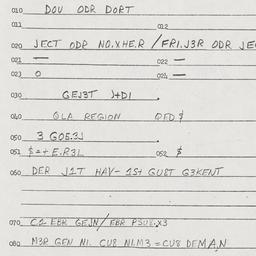 010 DOV ODR DORT
011 012
020 JECT ODR NO.XHE.R / FRI.J3R ODR JE
021 — 022 —
023 O 024 —
030 GEJ3T J+DI .
040 OLA REGION OFD $
050 3 GOE3J .
051 $=+E.R3L 052 $
060 DER J1T HAV- 1St GU8T G3KENT
070 C1 EBR GEJN/ EBR P3U8.X3
080 M3R GEN NI. CU8 NI.M3 = CU8 DEMA,N